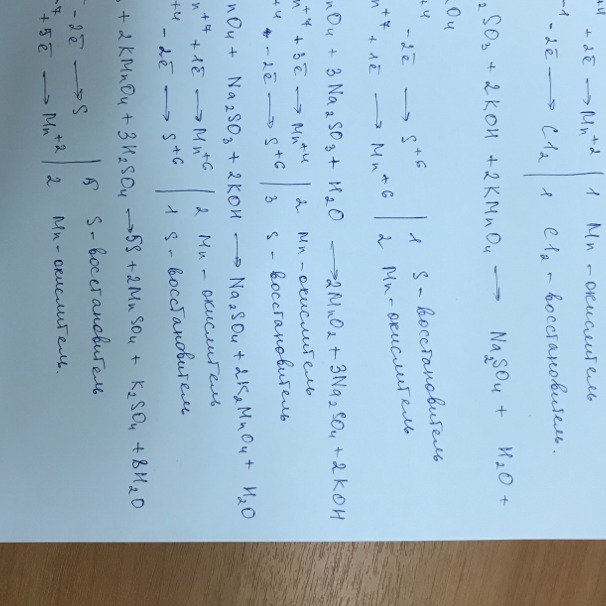 +4 + 2ē → Mn+2 | 1 Mn - окислитель
-1 - 2ē → Cl2 | 1 Cl2 - восстановитель.
2SO3 + 2KOH + 2KMnO4 → Na2SO4 + H2O +
nO4
+4 - 2ē → S+6 | 1 S - восстановитель
n+7 + 1ē → Mn+6 | 2 Mn - окислитель
nO4 + 3Na2SO3 + H2O → 2MnO2 + 3Na2SO4 + 2KOH
n+7 + 3ē → Mn+4 | 2 Mn - окислитель
+4 - 2ē → S+6 | 3 S - восстановитель
nO4 + Na2SO3 + 2KOH → Na2SO4 + 2K2MnO4 + H2O
n+7 + 1ē → Mn+6 | 2 Mn - окислитель
+4 - 2ē → S+6 | 1 S - восстановитель
+ 2KMnO4 + 3H2SO4 → 5S + 2MnSO4 + K2SO4 + 8H2O
- 2ē → S | 5 S - восстановитель
+7 + 5ē → Mn+2 | 2 Mn - окислитель.